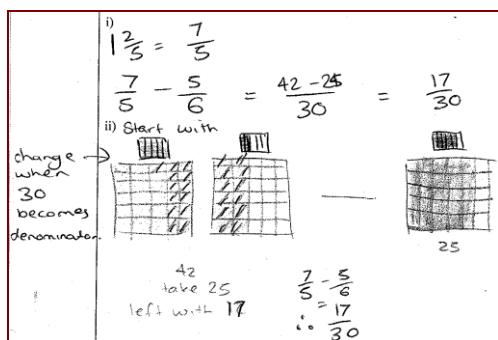 i)
1 2/5 = 7/5
7/5 - 5/6 = 42 - 25/30 = 17/30
ii) Start with
change →
when
30
becomes
denominator.
25
42
take 25
left with 17
7/5 - 5/6
=
∴ 17/30